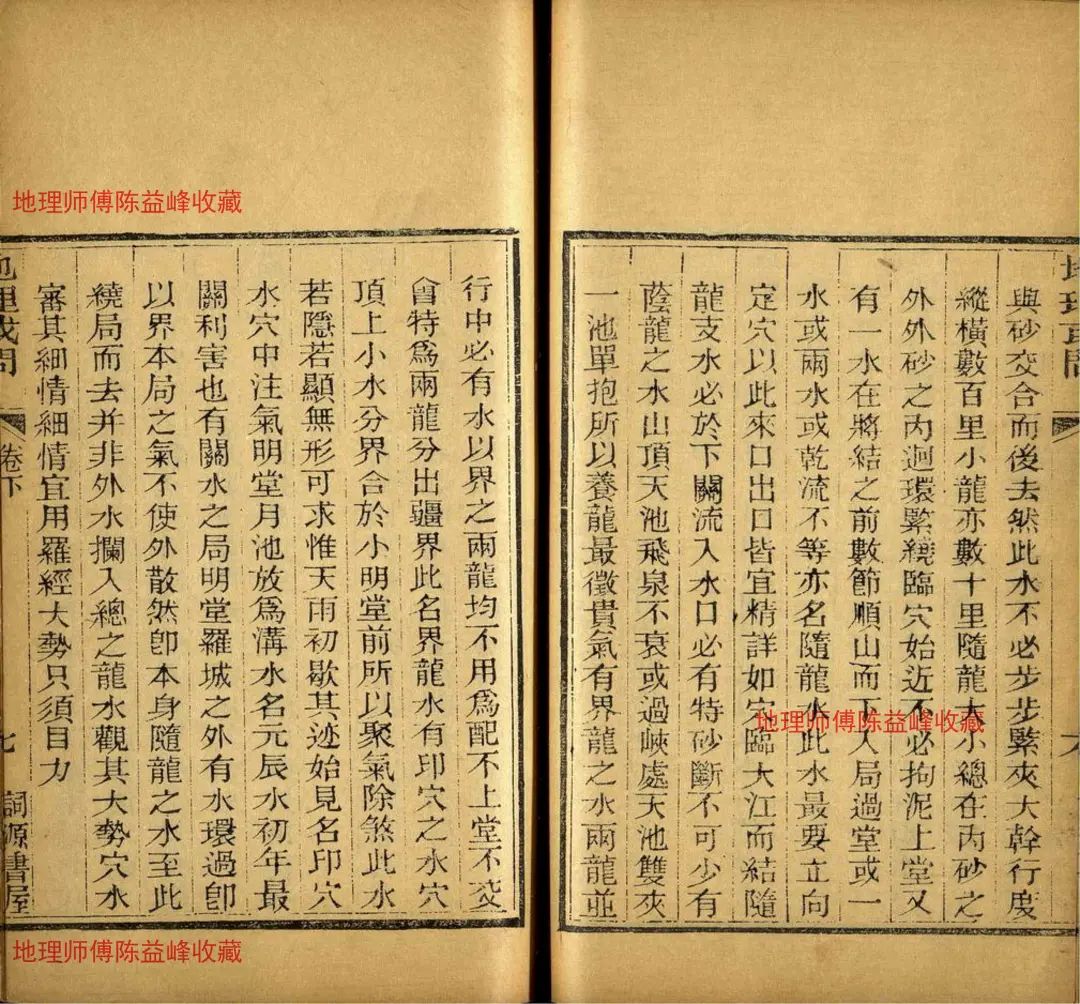 與砂交合而後去然此水不必步步緊夾大幹行度
縱橫數百里小龍亦數十里隨龍大小總在內砂之
外外砂之內迴環緊繞臨穴始近不必拘泥上堂又
有一水在將結之前數節順山而下入局過堂或一
水或兩水或乾流不等亦名隨龍水此水最要立向
定穴以此來口出口皆宜精詳如穴臨大江而結隨
龍支水必於下關流入水口必有特砂斷不可少有
蔭龍之水山頂天池飛泉不衰或過峽處天池雙夾
一池單抱所以養龍最徵貴氣有界龍之水兩龍並
行中必有水以界之兩龍均不用為配不上堂不交
會特為兩龍分出疆界此名界龍水有印穴之水穴
頂上小水分界合於小明堂前所以聚氣除煞此水
若隱若顯無形可求惟天雨初歇其迹始見名印穴
水穴中注氣明堂月池放為溝水名元辰水初年最
關利害也有關水之局明堂羅城之外有水環過卽
以界本局之氣不使外散然卽本身隨龍之水至此
繞局而去并非外水攔入總之龍水觀其大勢穴水
審其細情細情宜用羅經大勢只須目力
地理或問
卷下
七
詞源書屋
地理师傅陈益峰收藏
地理师傅陈益峰收藏
地理师傅陈益峰收藏